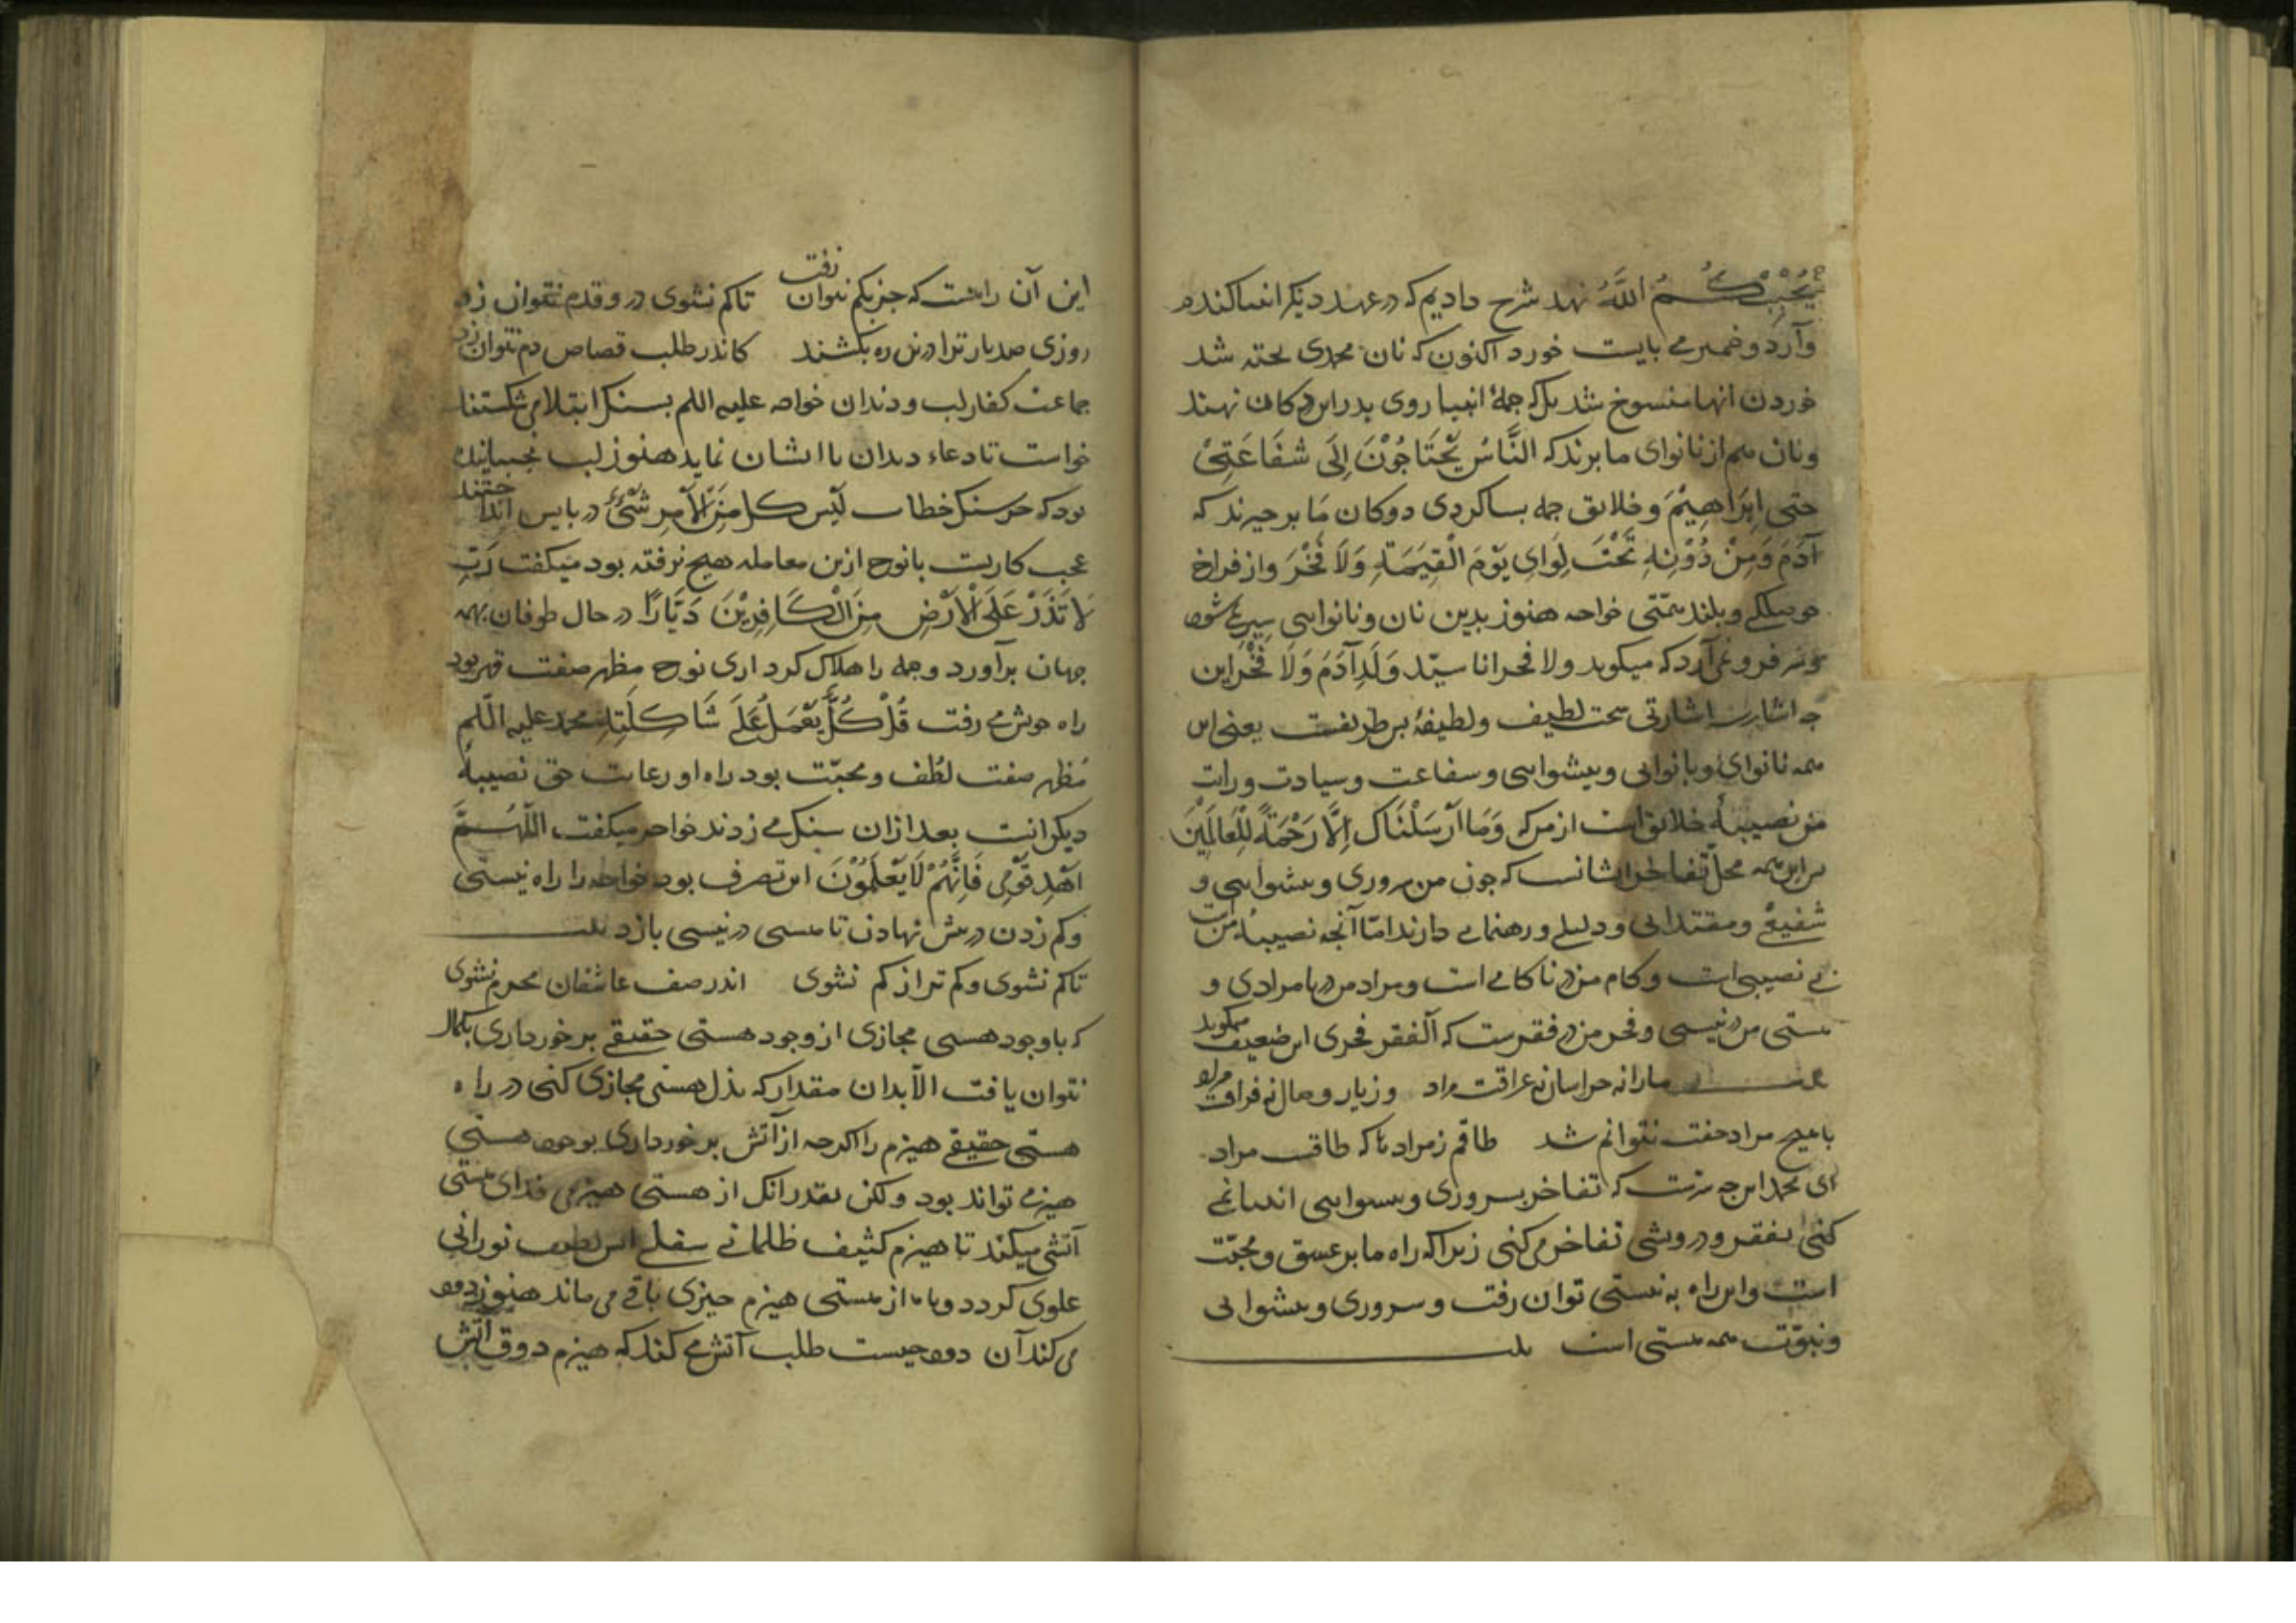 یُحْبِبْکُمُ اللّٰهُ نهد شرح دادیم که در عهد دیکر انبیا کندم
وآرد و خمیر می بایست خورد اکنون که نان محمدی بخته شد
خوردن انها منسوخ شد بلکه جملهٔ انبیا روی بدر این دکان نهند
ونان هم از نانوای ما برند که النَّاسُ یَحْتَاجُوْنَ اِلَی شَفَاعَتِیْ
حتی اِبْرَاهِیْمَ و خلایق جمله بساکردی دوکان مَا برخیزند که
آدَمَ وَمَنْ دُوْنِهِ تَحْتَ لِوَایِ یَوْمَ الْقِیٰمَةِ وَلَا فَخْرَ واز فراخ
حوصلکی وبلند همّتی خواجه هنوز بدین نان ونانوایی سیر می شود
وسر فرو نمی آرد که میکوید ولا فخر انا سیّد وَلَدِ آدَمَ وَلَا فَخْرَ این
جه اشارت اشارتی سخت لطیف ولطیفهٔ بس طریفست یعنی این
همه نانوای وبانوایی وبیشوایی وشفاعت وسیادت ورایت
من نصیبهٔ خلایق است از من که وَمَا اَرْسَلْنَاکَ اِلَّا رَحْمَةً لِلْعَالَمِیْنَ
بس این همه محلّ تفاخر ایشانست که جون من سروری وبیشوایی و
شفیعی ومقتدایی ودلیلی ورهنمایی دارند امّا آنجه نصیبهٔ من است
بی نصیبی است وکام من در ناکامی است ومراد من در نامرادی و
هستی من در نیستی وفخر من در فقرست که الفقر فخری این ضعیف میکوید
بیت مارا نه خراسان نه عراقت مراد وز یار وصال نه فراقت مراد
باهیچ مراد جفت نتوانم شد طاقم ز مراد تا که طاقت مراد
ای محمد این جه سرّست که تفاخر بسروری وبیشوایی انبیا نمی
کنی بفقر ودرویشی تفاخر می کنی زیرا که راه ما بر عشق ومحبّت
است واین راه به نیستی توان رفت وسروری وبیشوایی
ونبوّت همه هستی است بیت
این آن راهست که جز بکم نتوان رفت تاکم نشوی درو قدم نتوان زد
روزی صد بار ترا درین ره بکشند کاندر طلب قصاص دم نتوان زد
جماعت کفار لب ودندان خواجه علیه اللم بسنک ابتلا می شکستند
خواست تا دعاء بدان با ایشان نماید هنوز لب نجنبانیده
بود که سنک خطاب لَیْسَ لَکَ مِنَ الْاَمْرِ شَیْءٌ در باییش انداختند
عجب کاریست بانوح ازین معامله هیج نرفته بود میکفت رَبِّ
لَا تَذَرْ عَلَی الْاَرْضِ مِنَ الْکَافِرِیْنَ دَیَّارًا در حال طوفان بهمه
جهان برآورد وجمله را هلاک کرد اری نوح مظهر صفت قهر بود
راه خویش می رفت قُلْ کُلٌّ یَعْمَلُ عَلَی شَاکِلَتِهِ محمد علیه اللم
مُظهر صفت لُطف ومحبّت بود راه او رعایت حق نصیبهٔ
دیکرانست بعد ازان سنک می زدند خواجه میکفت اَللّٰهُمَّ
اهْدِ قَوْمِی فَاِنَّهُمْ لَا یَعْلَمُوْنَ این تصرف بود خواجه را راه نیستی
وکم زدن در بیش نهادن تا هستی در نیستی بازد بیت
تاکم نشوی وکم تر از کم نشوی اندر صف عاشقان محرم نشوی
که باوجود هستی مجازی از وجود هستی حقیقی برخورداری بکمال
نتوان یافت الّا بدان مقدار که بذل هستی مجازی کنی در راه
هستی حقیقی هیزم را اکرجه از آتش برخورداری بوجود هستی
هیزمی تواند بود ولکن بقدر انک از هستی هیزمی فدای هستی
آتشی میکند تا هیزم کثیف ظلمانی سفلی آتش لطیف نورانی
علوی کردد وتا از هستی هیزم جیزی باقی می ماند هنوز دود
می کند آن دود جیست طلب آتش می کند که هیزم ذوق آتش